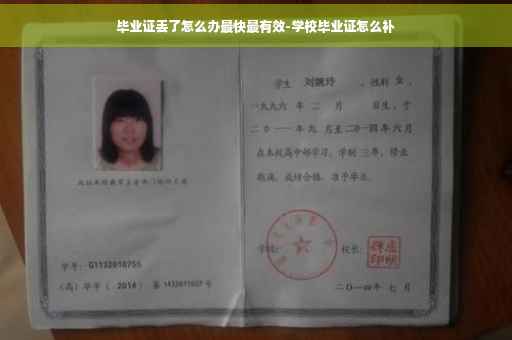 毕业证丢了怎么办最快最有效-学校毕业证怎么补
学生 刘婉玲 ，性别 女 ，
一九九六 年 二 月 日生，于
二〇一一年九 月至二〇一四年六月
在本校高中部学习，学制 三年，修业
期满，成绩合格，准予毕业。
学校： 校长：
二〇一四年 七 月
学号： G1132010755
（高）毕字（ 2014 ）第 1432011027 号